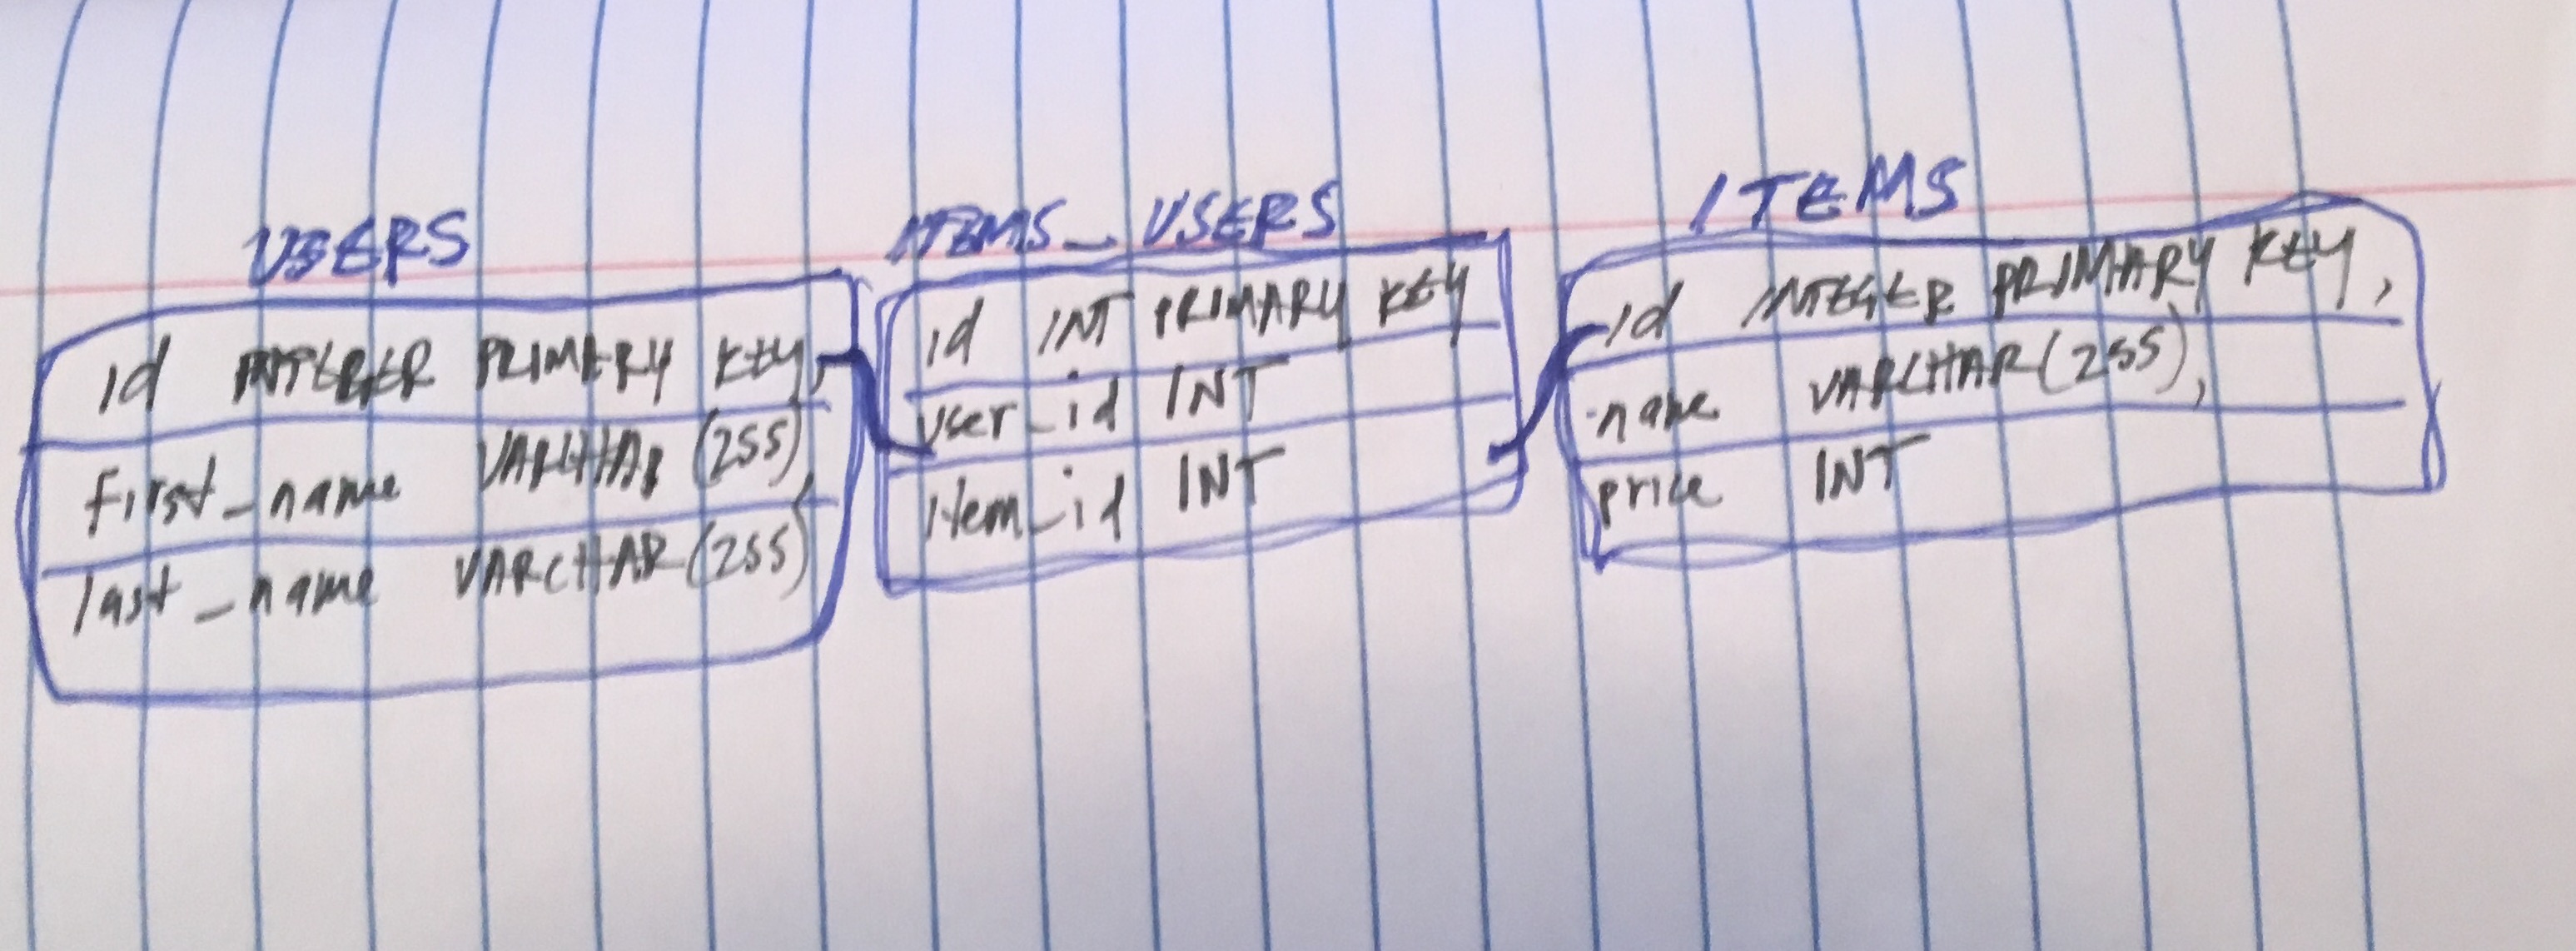 USERS
id INTEGER PRIMARY KEY,
first_name VARCHAR(255),
last_name VARCHAR(255)
ITEMS_USERS
id INT PRIMARY KEY
user_id INT
item_id INT
ITEMS
id INTEGER PRIMARY KEY,
name VARCHAR(255),
price INT